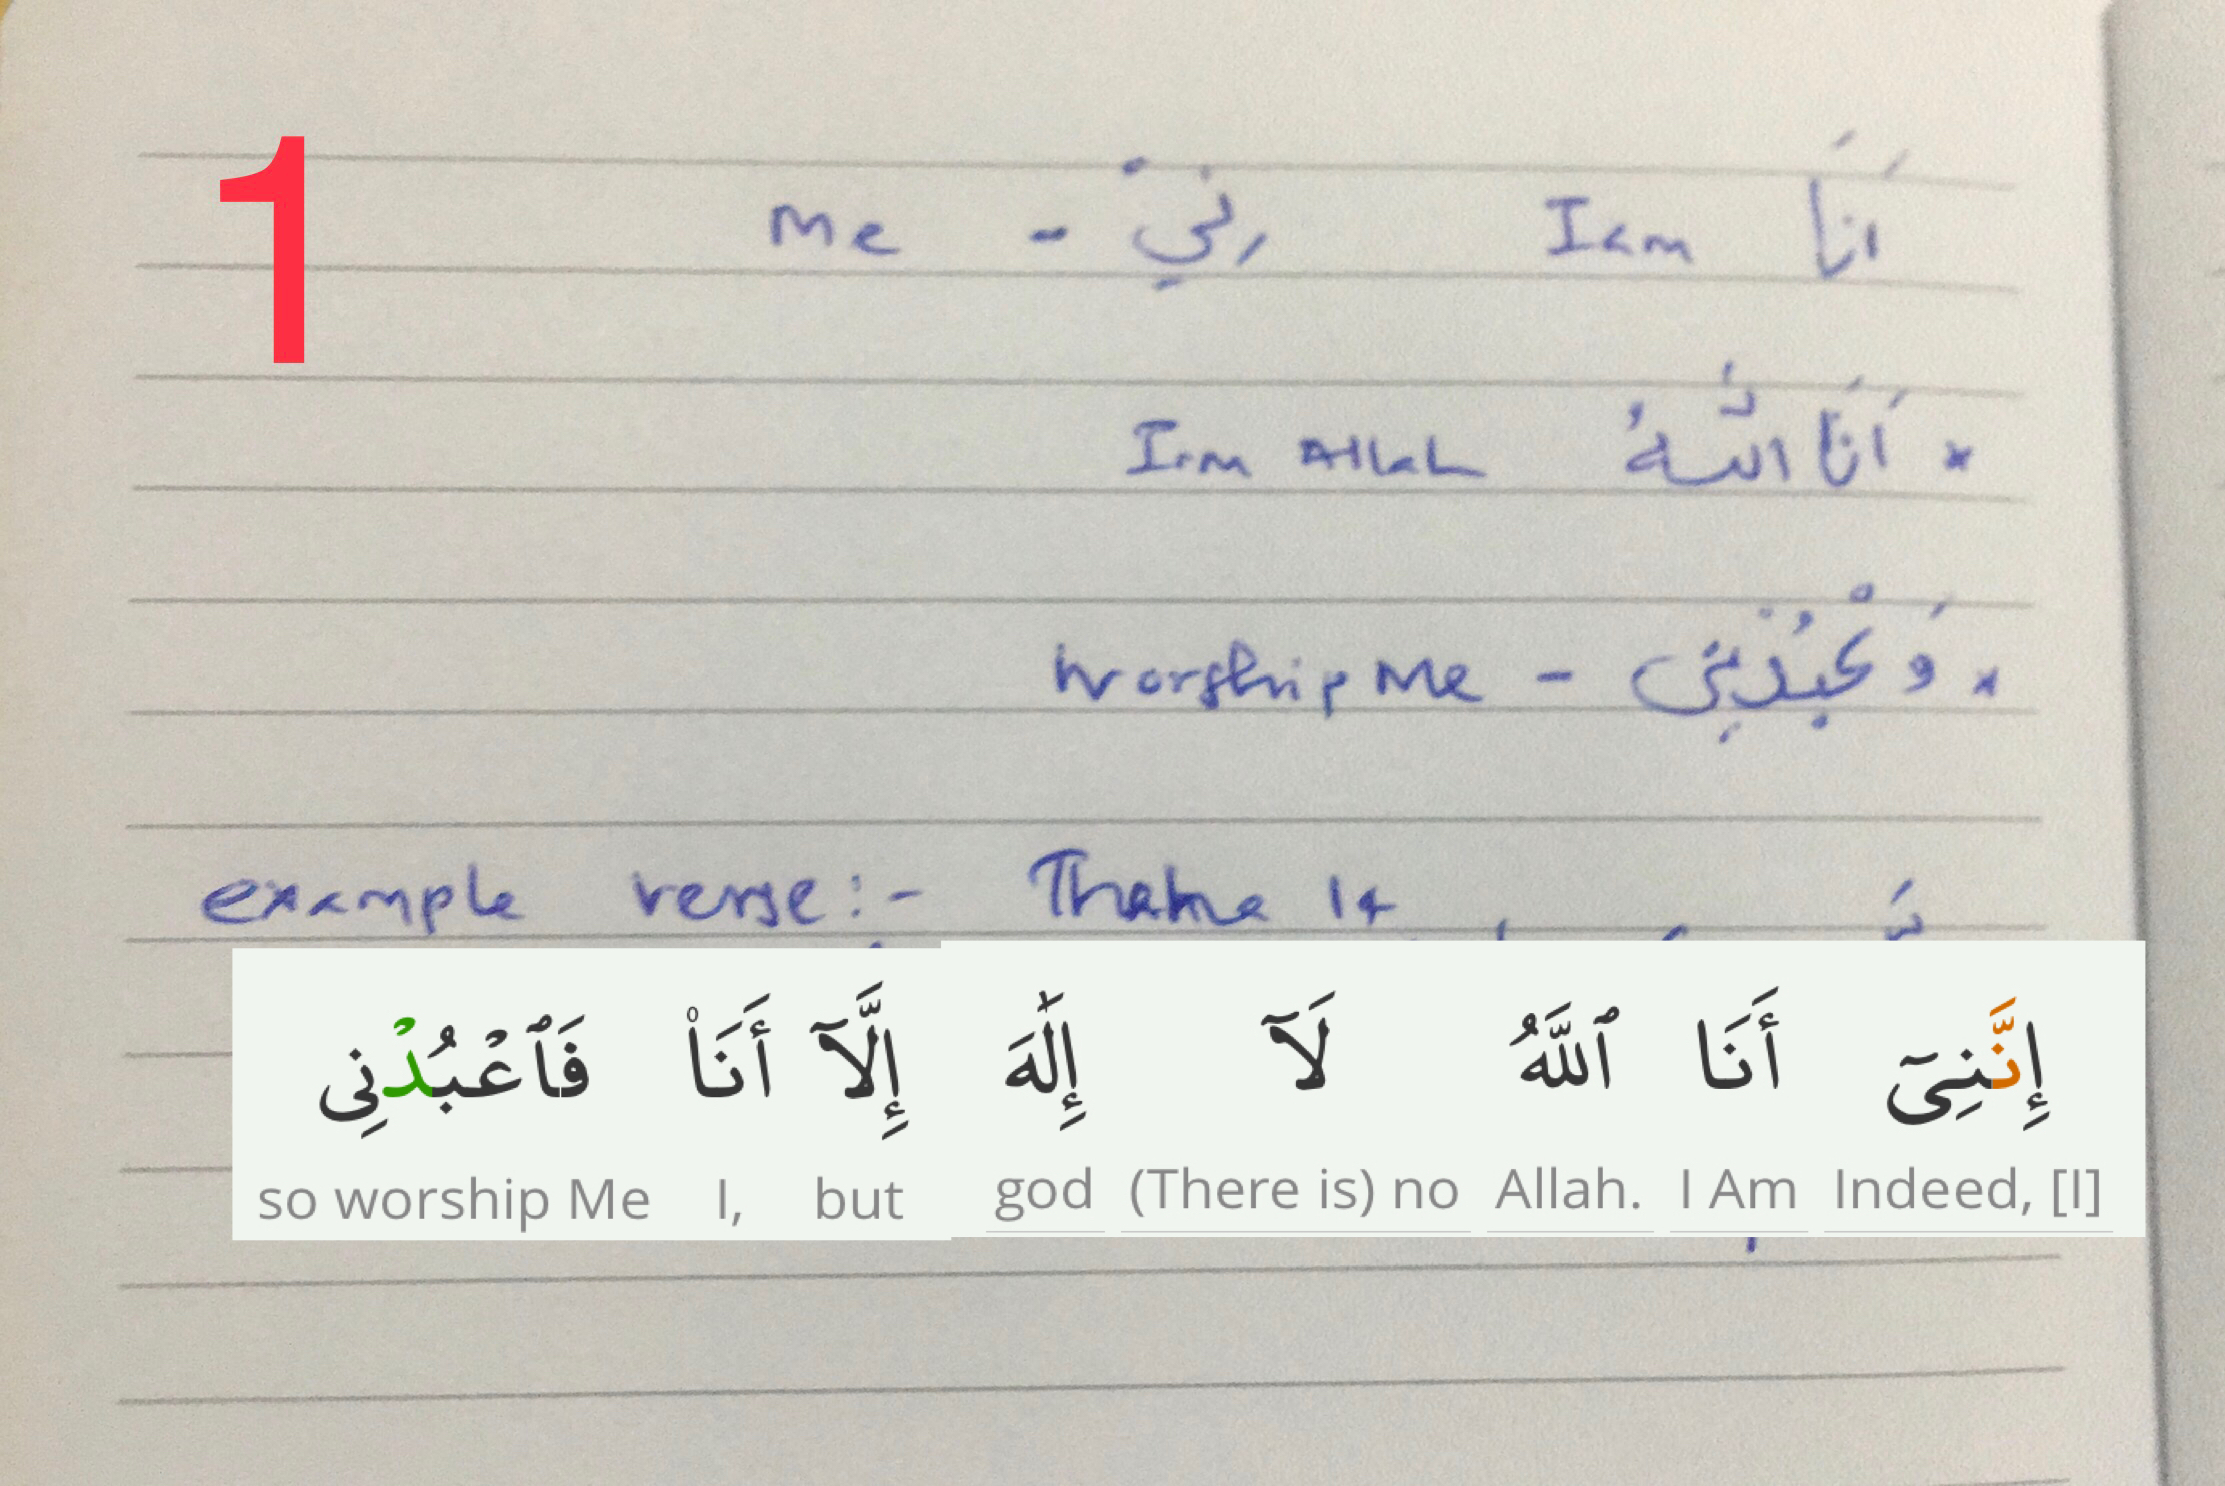 1
اَنَا Iam نِيْ - Me
* اَنَا اللّٰهُ Iam Allah
* وَعْبُدْنِى - Worship Me
example verse:- Thaha 14
إِنَّنِىٓ أَنَا ٱللَّهُ لَآ إِلَٰهَ إِلَّآ أَنَا۠ فَٱعْبُدْنِى
Indeed, [I] I Am Allah. (There is) no god but I, so worship Me